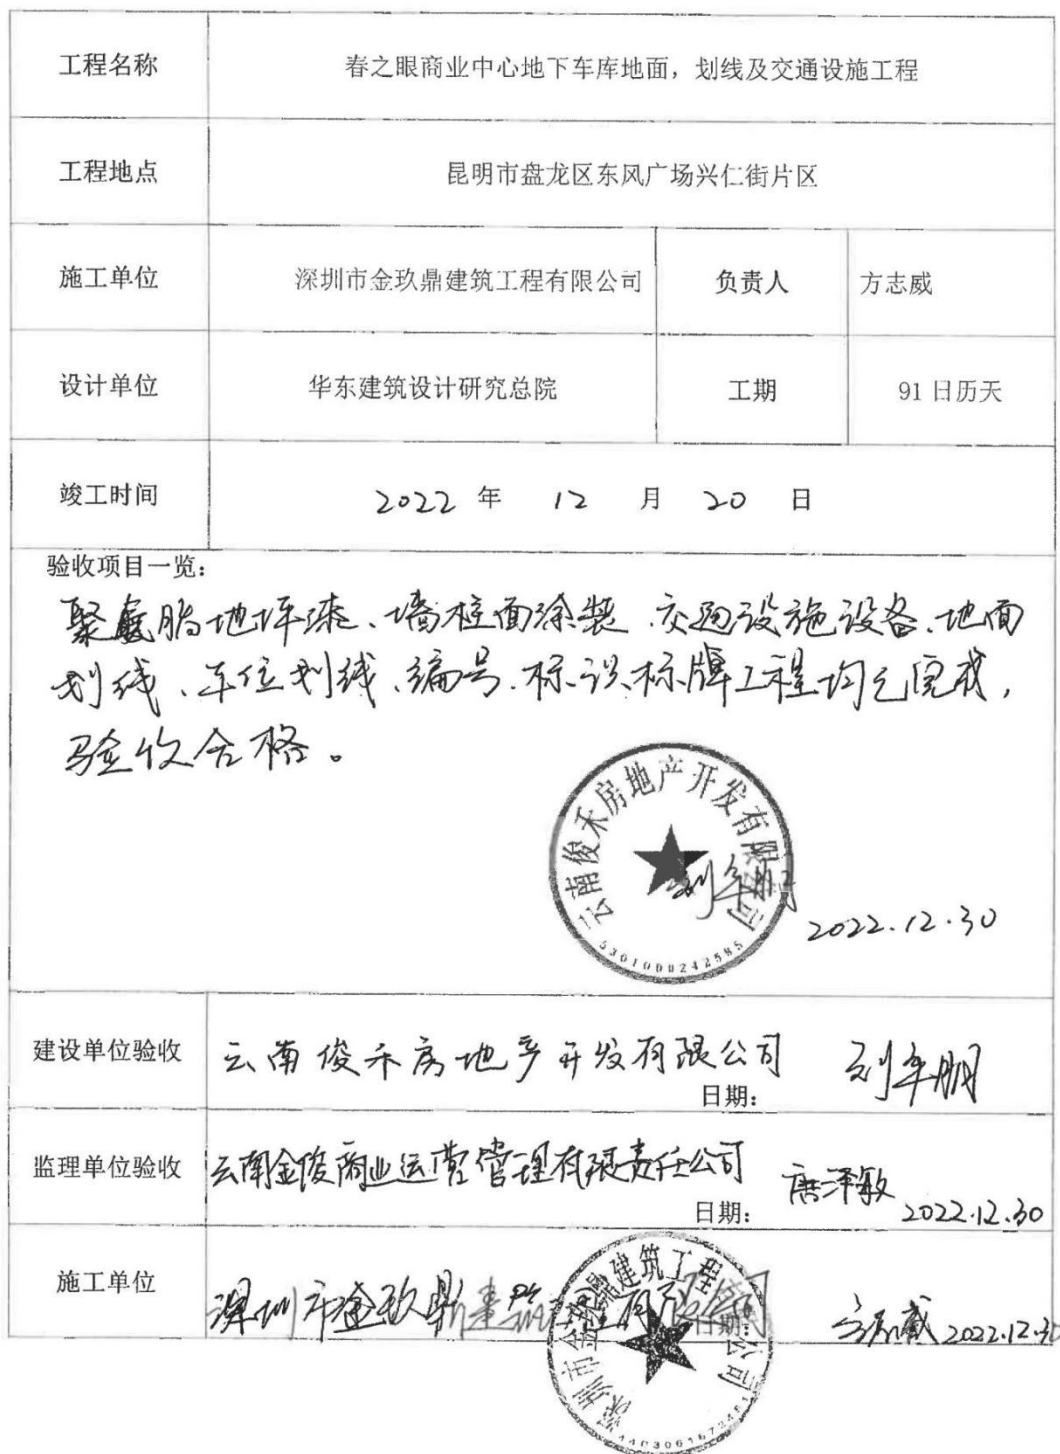 工程名称 春之眼商业中心地下车库地面，划线及交通设施工程
工程地点 昆明市盘龙区东风广场兴仁街片区
施工单位 深圳市金玖鼎建筑工程有限公司 负责人 方志威
设计单位 华东建筑设计研究总院 工期 91 日历天
竣工时间 2022 年 12 月 20 日
验收项目一览：
聚氨脂地坪漆、墙柱面涂装、交通设施设备、地面
划线、车位划线、编号、标识标牌工程均已完成，
验收合格。
云南俊禾房地产开发有限公司
5301000242585
2022.12.30
建设单位验收 云南俊禾房地产开发有限公司
日期：
监理单位验收 云南金俊商业运营管理有限责任公司 唐泽敏
日期： 2022.12.30
施工单位 深圳市金玖鼎建筑工程有限公司
日期： 方志威 2022.12.30
深圳市金玖鼎建筑工程有限公司